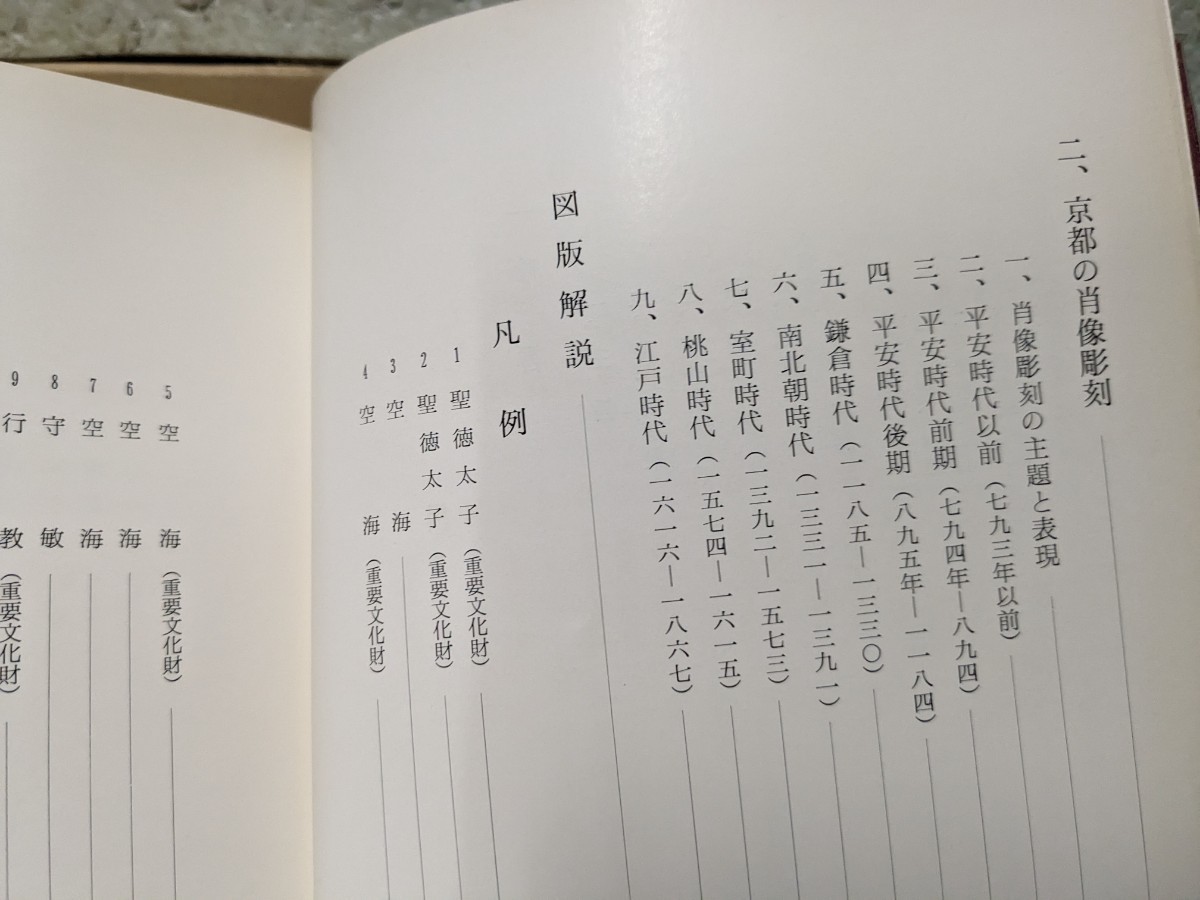 二、京都の肖像彫刻
一、肖像彫刻の主題と表現
二、平安時代以前（七九三年以前）
三、平安時代前期（七九四年—八九四）
四、平安時代後期（八九五年—一一八四）
五、鎌倉時代（一一八五—一三三〇）
六、南北朝時代（一三三一—一三九一）
七、室町時代（一三九二—一五七三）
八、桃山時代（一五七四—一六一五）
九、江戸時代（一六一六—一八六七）
図版解説
凡例
1 聖徳太子（重要文化財）
2 聖徳太子（重要文化財）
3 空海
4 空海（重要文化財）
5 空海（重要文化財）
6 空海
7 空海
8 守敏
9 行教（重要文化財）